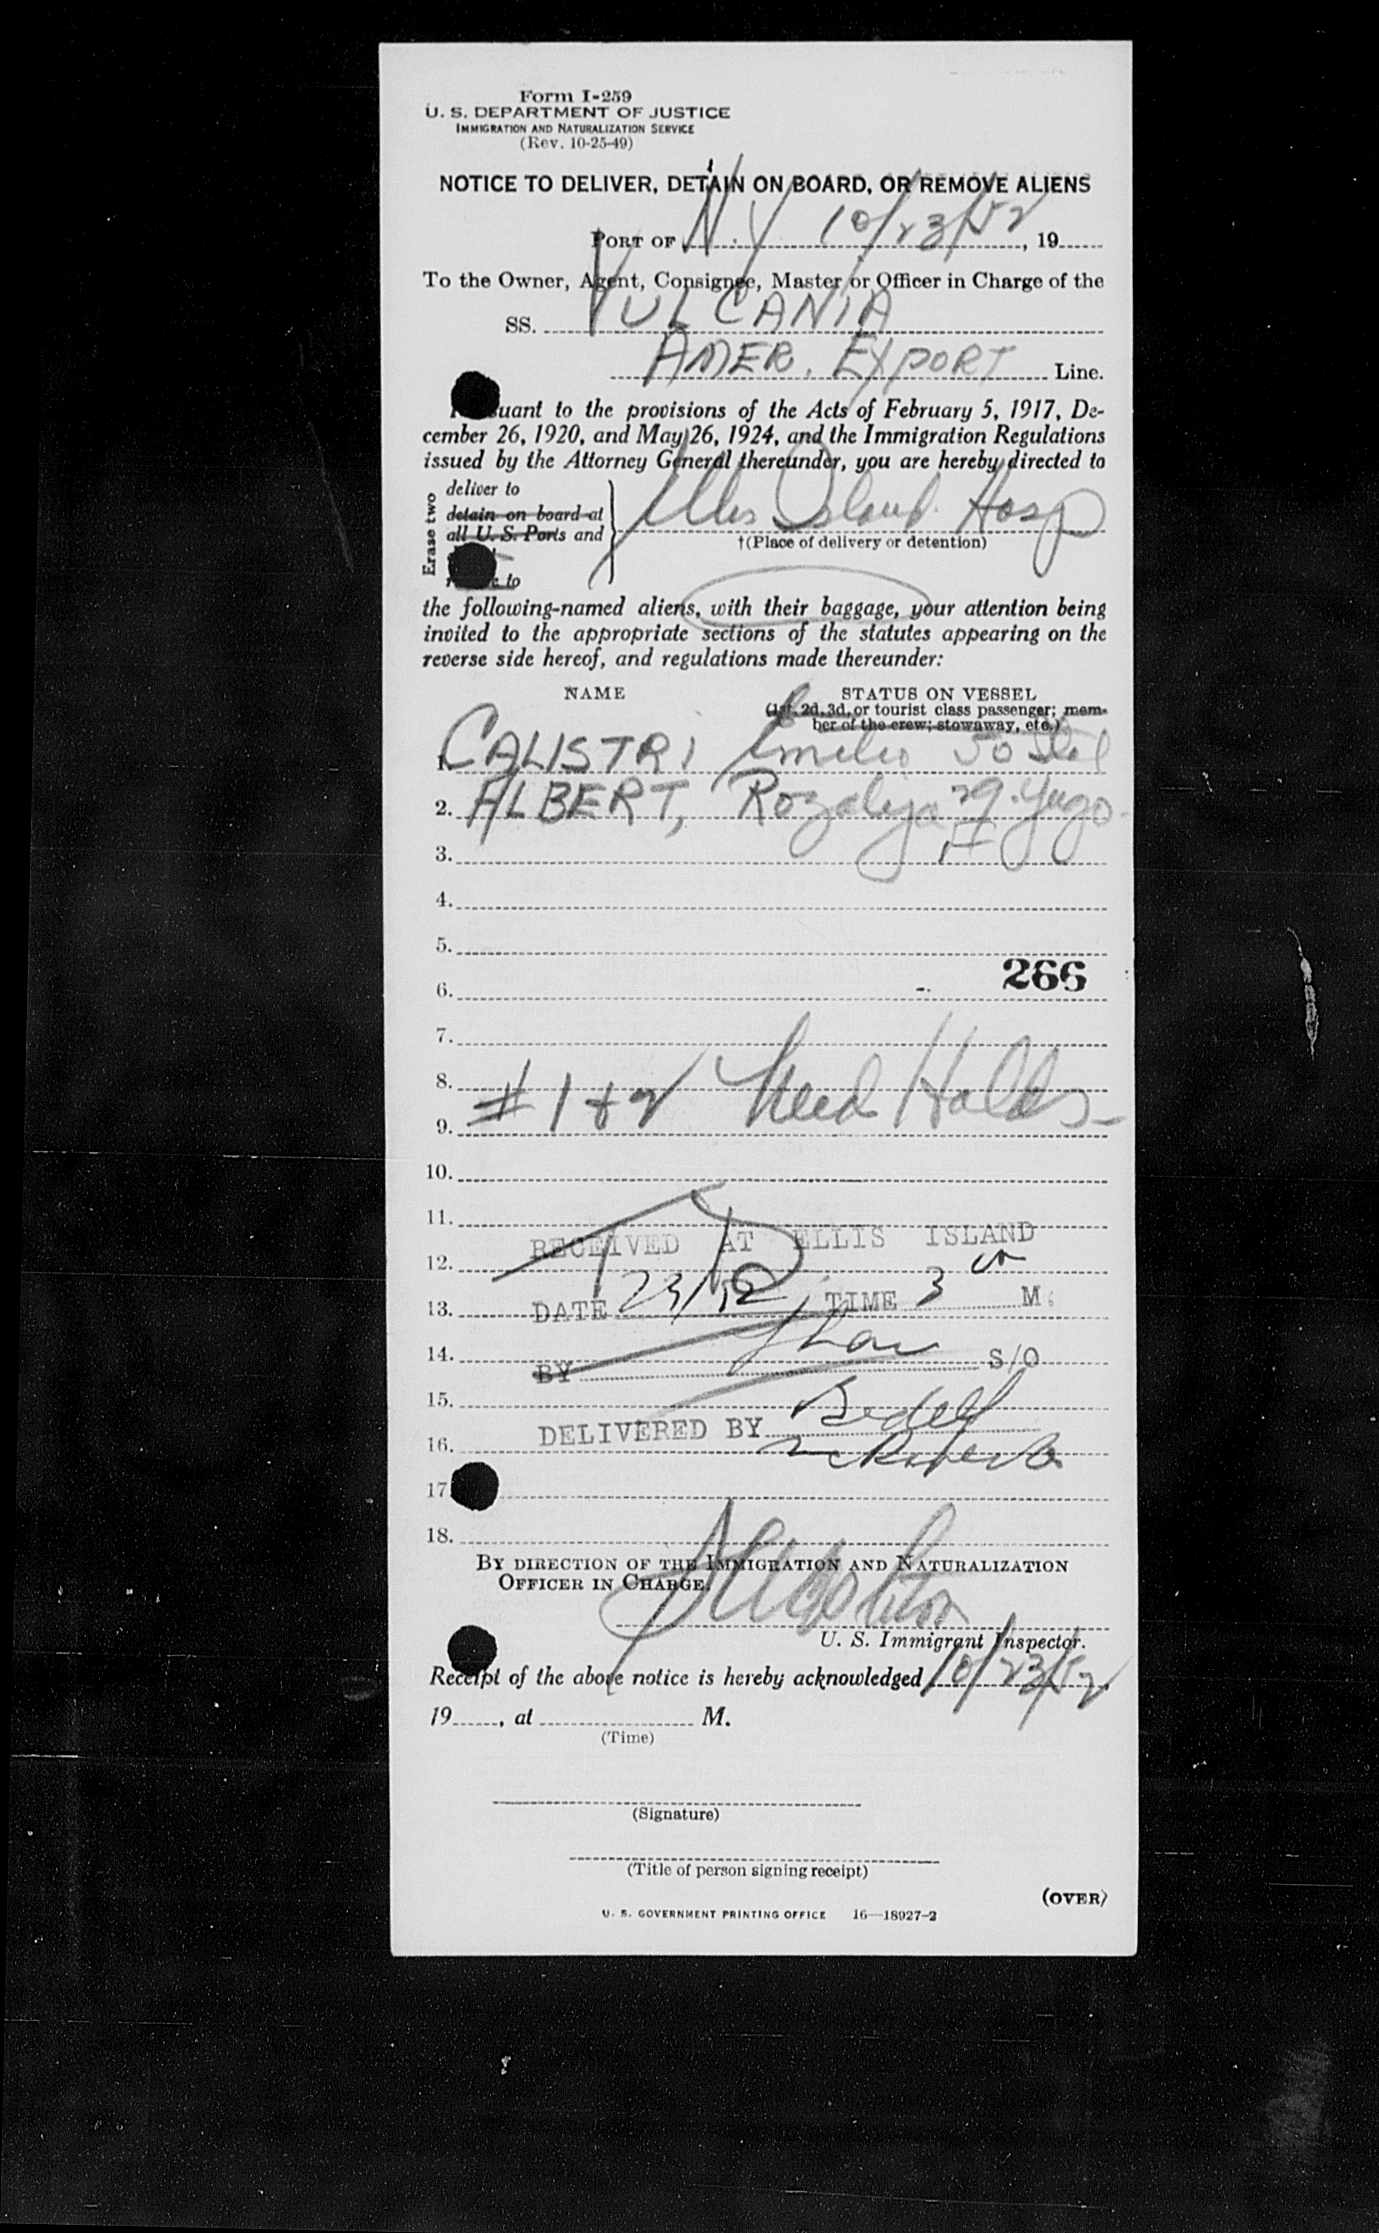 Form I-259
U. S. DEPARTMENT OF JUSTICE
IMMIGRATION AND NATURALIZATION SERVICE
(Rev. 10-25-49)
NOTICE TO DELIVER, DETAIN ON BOARD, OR REMOVE ALIENS
PORT OF N.Y 10/23/52, 19
To the Owner, Agent, Consignee, Master or Officer in Charge of the
SS. VULCANIA
AMER. EXPORT Line.
Pursuant to the provisions of the Acts of February 5, 1917, De-
cember 26, 1920, and May 26, 1924, and the Immigration Regulations
issued by the Attorney General thereunder, you are hereby directed to
Erase two
deliver to
detain on board at
all U. S. Ports and
to
Ellis Island Hosp
†(Place of delivery or detention)
the following-named aliens, with their baggage, your attention being
invited to the appropriate sections of the statutes appearing on the
reverse side hereof, and regulations made thereunder:
NAME STATUS ON VESSEL
(1st, 2d, 3d, or tourist class passenger; mem-
ber of the crew; stowaway, etc.)
1. CALISTRI Emilio 50 Ital
2. ALBERT, Rozalija 29. Yugo.
3.
4.
5.
266
6.
7.
8.
#1 + 2 Need Holds
9.
10.
11.
RECEIVED AT ELLIS ISLAND
12.
13. DATE 23/52 TIME 3 M.
14.
BY S/O
15.
DELIVERED BY Bedell
16.
17.
18.
BY DIRECTION OF THE IMMIGRATION AND NATURALIZATION
OFFICER IN CHARGE.
U. S. Immigrant Inspector.
Receipt of the above notice is hereby acknowledged 10/23/52,
19, at M.
(Time)
(Signature)
(Title of person signing receipt)
(OVER)
U. S. GOVERNMENT PRINTING OFFICE 16—18927-2